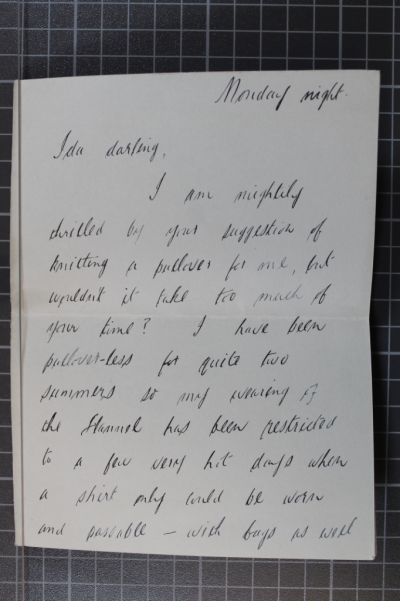 Monday night.
Ida darling,
I am mightily
thrilled by your suggestion of
knitting a pullover for me, but
wouldn't it take too much of
your time? I have been
pullover-less for quite two
summers so my wearing of
the flannel has been restricted
to a few very hot days when
a shirt only could be worn
and passable – with bags as well